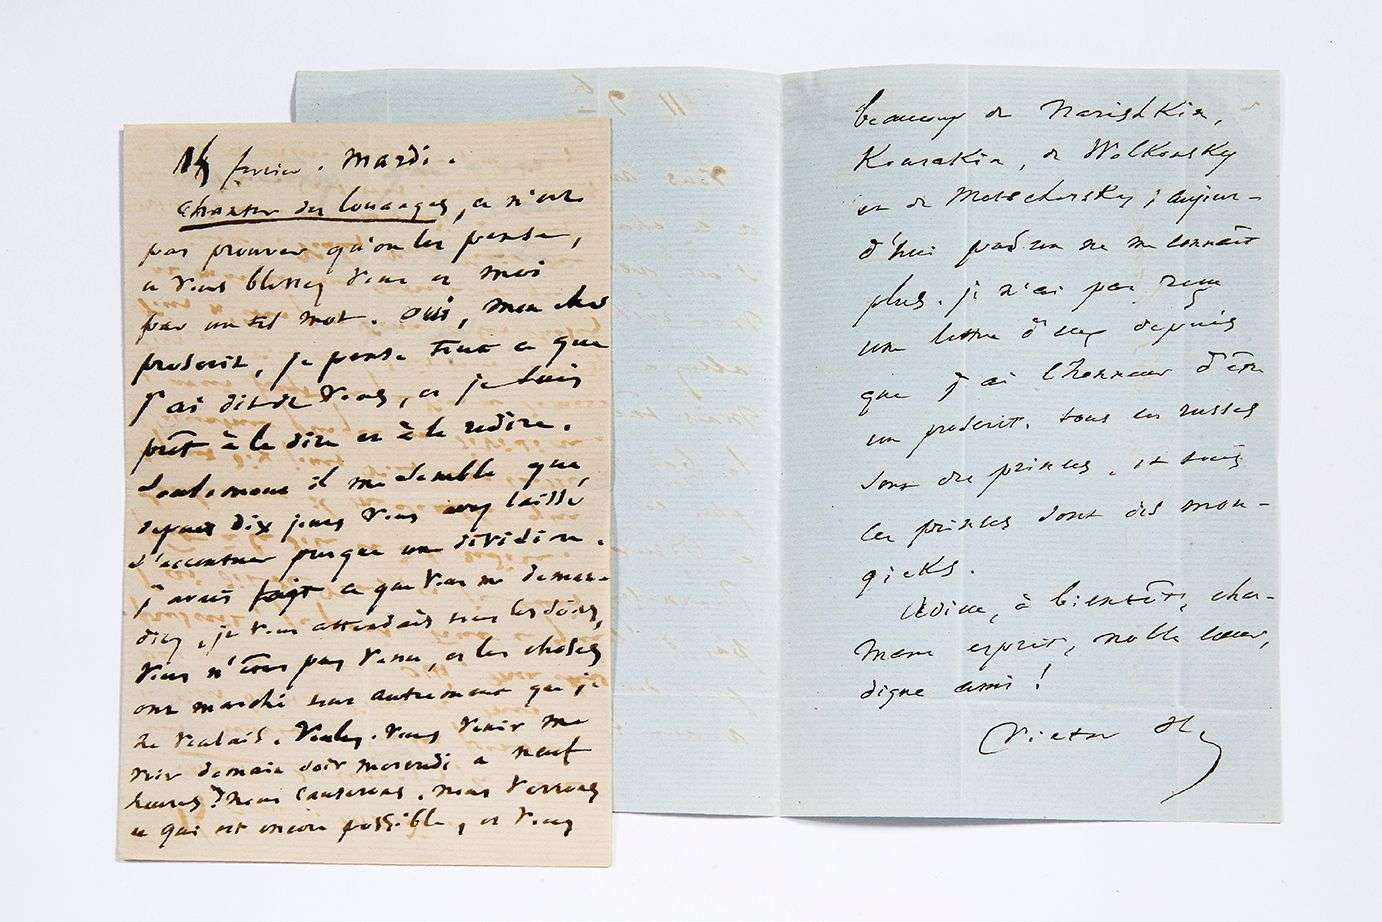 14 février. Mardi.
Chanter des louanges, ce n'est
pas prouver qu'on les pense,
et vous blessez vous et moi
par un tel mot. Oui, mon cher
proscrit, je pense tout ce que
j'ai dit de vous, et je suis
prêt à le dire et à le redire.
Seulement il me semble que,
depuis dix jours vous avez laissé
s'accentuer presque un dividire.
J'avais fait ce que vous me deman-
diez, je vous attendais tous les jours,
vous n'êtes pas venu, et les choses
ont marché tout autrement que je
ne voulais. Voulez-vous venir me
voir demain soir mercredi à neuf
heures? Nous causerons. Nous verrons
ce qui est encore possible, et vous
beaucoup de Narishkin,
Kourakin, de Wolkonsky
et de Metschersky; aujour-
d'hui pas un ne me connaît
plus. Je n'ai pas reçu
une lettre d'eux depuis
que j'ai l'honneur d'être
un proscrit. Tous les russes
sont des princes, et tous
les princes sont des mou-
gicks.
Adieu, à bientôt, char-
mant esprit, noble cœur,
digne ami!
Victor H